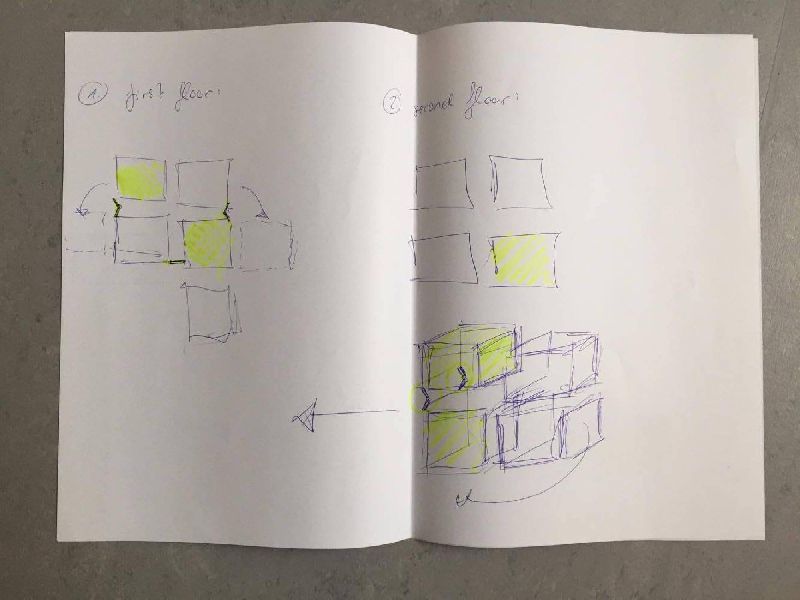 1. first floor:
2. second floor: